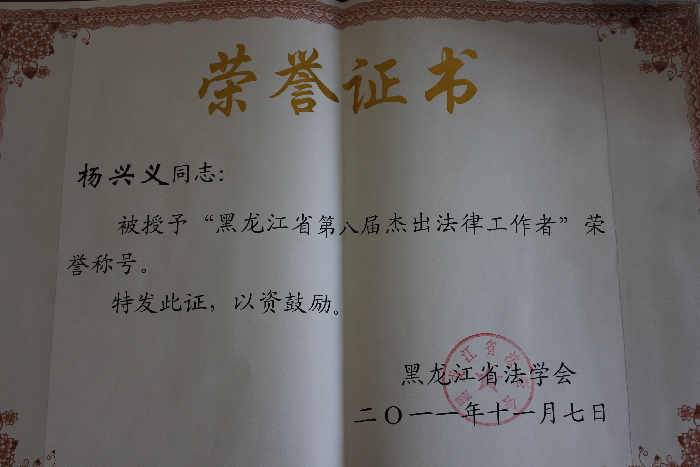 荣誉证书
杨兴义同志：
被授予“黑龙江省第八届杰出法律工作者”荣
誉称号。
特发此证，以资鼓励。
黑龙江省法学会
二〇一一年十一月七日